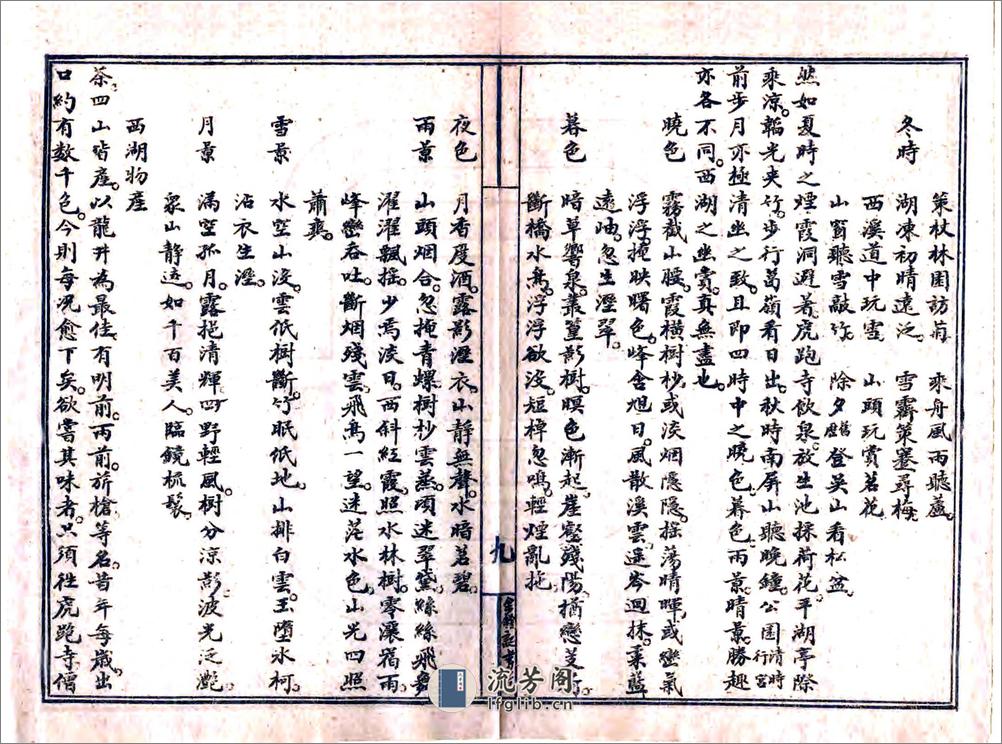 策杖林園訪菊　乘舟風雨聽蘆
冬時
湖凍初晴遠泛　雪霽策蹇尋梅
西溪道中玩雪　山頭玩賞茗花
山窗聽雪敲竹　除夕登吳山看松盆
然如夏時之煙霞洞避暑。虎跑寺飲泉。放生池採荷花。平湖亭除
乘涼。韜光夾竹。步行葛嶺看日出。秋時南屏山聽晚鐘。公園清時行宮
前步月。亦極清坐之致。且即四時中之曉色。暮色。雨景。晴景。勝趣
亦各不同。西湖之坐賞。真無盡也。
曉色
霧截山腰。霞橫樹杪。或淡烟隱隱。搖蕩晴暉。或巒氣
浮浮。掩映曙色。峰含旭日。風散溪雲。遥岑迴抹。柔藍
遠岫。忽生溼翠。
暮色
暗草響泉。叢篁影樹。暝色漸起。崖壑殘陽。猶戀
斷橋水鳥。浮浮欲沒。短棹忽鳴。輕煙亂拖
九
夜色
月香度酒。露影溼衣。山靜無聲。水暗茗碧。
雨景
山頭烟合。忽掩青螺。樹杪雲蒸。頃迷翠黛。絲絲飛
濯濯飄摇。少焉淡日。西斜紅霞。照水林樹。零瀼宿雨
峰巒吞吐。斷烟殘雲。飛鳥一望。迷茫水色。山光四照
蕭爽。
雪景
水空山沒。雲低樹斷。竹眠低地。山排白雲。玉墮氷柯
沾衣生溼。
月景
滿空孤月。露挹清輝。四野輕風。樹分涼影。波光泛灔
眾山靜遠。如千百美人。臨鏡梳鬟。
西湖物產
茶。四山皆產。以龍井為最佳。有明前。雨前。旂槍等名。昔年每歲出
口約有数千包。今則每況愈下矣。欲嘗其味者。只須往虎跑寺僧
流芳阁
lfglib.cn